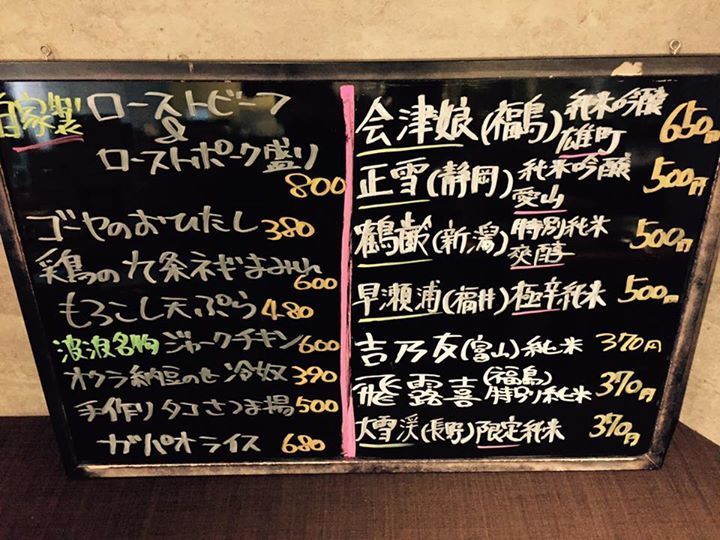 自家製 ローストビーフ
&
ローストポーク盛り
800
ゴーヤのおひたし 380
彩鶏の九条ネギまみれ
600
もろこし天ぷら 480
波波名物 ジャークチキン 600
オクラ納豆のせ 冷奴 390
手作り タコさつま揚 500
ガパオライス 680
会津娘(福島)純米吟醸 650円
雄町
正雪(静岡)純米吟醸 500円
愛山
鶴齢(新潟)特別純米 500円
爽醇
早瀬浦(福井)極辛純米 500円
吉乃友(富山)純米 370円
飛露喜(福島)特別純米 370円
大雪渓(長野)限定純米 370円